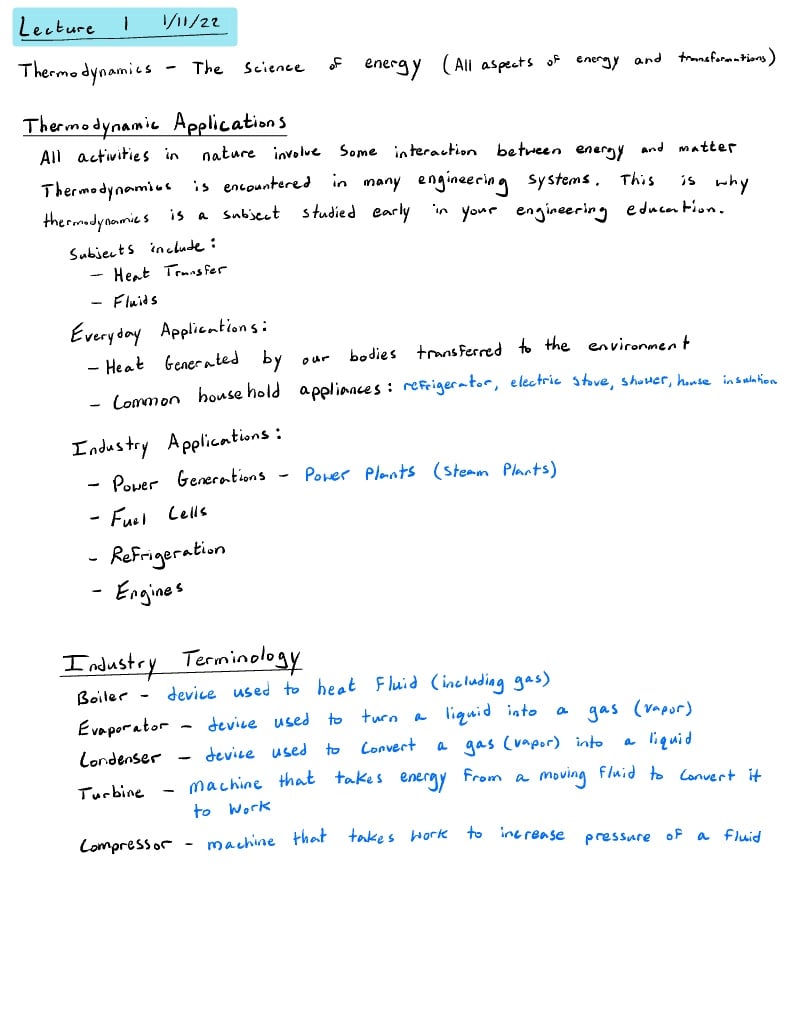 Lecture 1 1/11/22
Thermodynamics - The science of energy (All aspects of energy and transformations)
Thermodynamic Applications
All activities in nature involve some interaction between energy and matter
Thermodynamics is encountered in many engineering systems. This is why
thermodynamics is a subject studied early in your engineering education.
Subjects include:
- Heat Transfer
- Fluids
Everyday Applications:
- Heat Generated by our bodies transferred to the environment
- Common household appliances: refrigerator, electric stove, shower, house insulation
Industry Applications:
- Power Generations - Power Plants (Steam Plants)
- Fuel Cells
- Refrigeration
- Engines
Industry Terminology
Boiler - device used to heat fluid (including gas)
Evaporator - device used to turn a liquid into a gas (vapor)
Condenser - device used to convert a gas (vapor) into a liquid
Turbine - machine that takes energy from a moving fluid to convert it
to work
Compressor - machine that takes work to increase pressure of a fluid